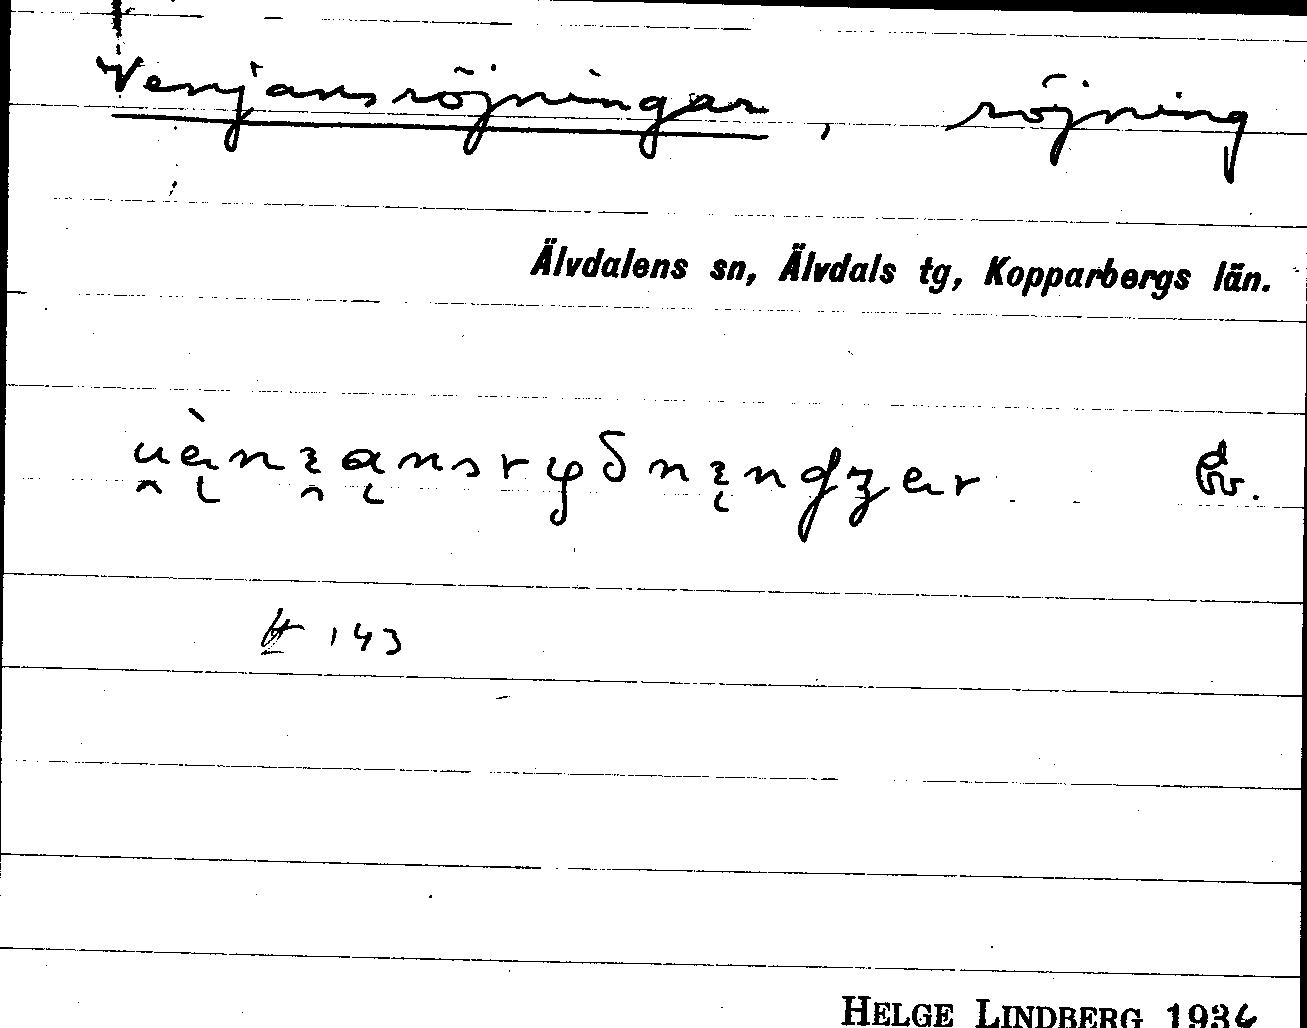 Venjansröjningar, röjning
Älvdalens sn, Älvdals tg, Kopparbergs län.
143
HELGE LINDBERG 1936